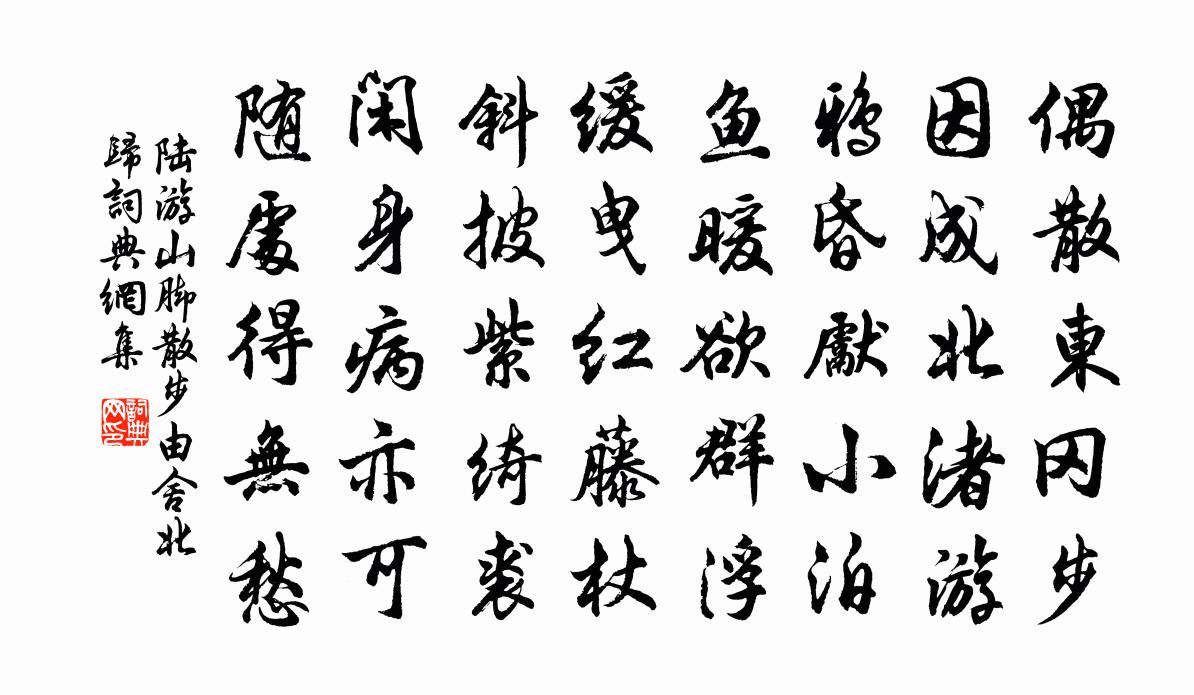 偶散東冈步
因成北渚游
鴉昏獻小泊
鱼暖欲群浮
缓曳红藤杖
斜披紫绮裘
闲身病亦可
随處得無愁
陆游山脚散步由舍北
歸詞典網集
詞典
网印